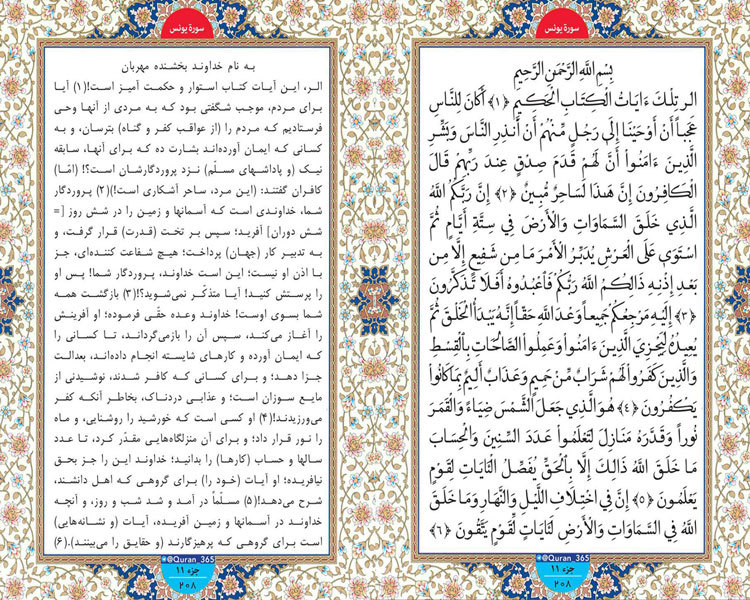 سورة یونس
بِسْمِ اللَّهِ الرَّحْمَنِ الرَّحِيمِ
الر تِلْكَ ءَايَاتُ الْكِتَابِ الْحَكِيمِ ﴿١﴾ أَكَانَ لِلنَّاسِ
عَجَباً أَنْ أَوْحَيْنَا إِلَى رَجُلٍ مِّنْهُمْ أَنْ أَنذِرِ النَّاسَ وَبَشِّرِ
الَّذِينَ ءَامَنُوا أَنَّ لَهُمْ قَدَمَ صِدْقٍ عِندَ رَبِّهِمْ قَالَ
الْكَافِرُونَ إِنَّ هَذَا لَسَاحِرٌ مُّبِينٌ ﴿٢﴾ إِنَّ رَبَّكُمُ اللَّهُ
الَّذِي خَلَقَ السَّمَاوَاتِ وَالْأَرْضَ فِي سِتَّةِ أَيَّامٍ ثُمَّ
اسْتَوَى عَلَى الْعَرْشِ يُدَبِّرُ الْأَمْرَ مَا مِن شَفِيعٍ إِلَّا مِن
بَعْدِ إِذْنِهِ ذَالِكُمُ اللَّهُ رَبُّكُمْ فَاعْبُدُوهُ أَفَلَا تَذَكَّرُونَ
﴿٣﴾ إِلَيْهِ مَرْجِعُكُمْ جَمِيعاً وَعْدَ اللَّهِ حَقّاً إِنَّهُ يَبْدَأُ الْخَلْقَ ثُمَّ
يُعِيدُهُ لِيَجْزِيَ الَّذِينَ ءَامَنُوا وَعَمِلُوا الصَّالِحَاتِ بِالْقِسْطِ
وَالَّذِينَ كَفَرُوا لَهُمْ شَرَابٌ مِّنْ حَمِيمٍ وَعَذَابٌ أَلِيمٌ بِمَا كَانُوا
يَكْفُرُونَ ﴿٤﴾ هُوَ الَّذِي جَعَلَ الشَّمْسَ ضِيَاءً وَالْقَمَرَ
نُوراً وَقَدَّرَهُ مَنَازِلَ لِتَعْلَمُوا عَدَدَ السِّنِينَ وَالْحِسَابَ
مَا خَلَقَ اللَّهُ ذَالِكَ إِلَّا بِالْحَقِّ يُفَصِّلُ الْآيَاتِ لِقَوْمٍ
يَعْلَمُونَ ﴿٥﴾ إِنَّ فِي اخْتِلَافِ اللَّيْلِ وَالنَّهَارِ وَمَا خَلَقَ
اللَّهُ فِي السَّمَاوَاتِ وَالْأَرْضِ لَآيَاتٍ لِّقَوْمٍ يَتَّقُونَ ﴿٦﴾
@Quran_365
جزء ۱۱
۲۰۸
سورة یونس
به نام خداوند بخشنده مهربان
الر، این آیات کتاب استوار و حکمت آمیز است!(۱) آیا
برای مردم، موجب شگفتی بود که به مردی از آنها وحی
فرستادیم که مردم را (از عواقب کفر و گناه) بترسان، و به
کسانی که ایمان آورده‌اند بشارت ده که برای آنها، سابقه
نیک (و پاداشهای مسلّم) نزد پروردگارشان است؟! (امّا)
کافران گفتند: (این مرد، ساحر آشکاری است!)(۲) پروردگار
شما، خداوندی است که آسمانها و زمین را در شش روز [=
شش دوران] آفرید؛ سپس بر تخت (قدرت) قرار گرفت، و
به تدبیر کار (جهان) پرداخت؛ هیچ شفاعت کننده‌ای، جز
با اذن او نیست؛ این است خداوند، پروردگار شما! پس او
را پرستش کنید! آیا متذکّر نمی‌شوید؟!(۳) بازگشت همه
شما بسوی اوست! خداوند وعده حقّی فرموده؛ او آفرینش
را آغاز می‌کند، سپس آن را بازمی‌گرداند، تا کسانی را
که ایمان آورده و کارهای شایسته انجام داده‌اند، بعدالت
جزا دهد؛ و برای کسانی که کافر شدند، نوشیدنی از
مایع سوزان است؛ و عذابی دردناک، بخاطر آنکه کفر
می‌ورزیدند!(۴) او کسی است که خورشید را روشنایی، و ماه
را نور قرار داد؛ و برای آن منزلگاه‌هایی مقدّر کرد، تا عدد
سالها و حساب (کارها) را بدانید؛ خداوند این را جز بحق
نیافریده؛ او آیات (خود را) برای گروهی که اهل دانشند،
شرح می‌دهد!(۵) مسلّماً در آمد و شد شب و روز، و آنچه
خداوند در آسمانها و زمین آفریده، آیات (و نشانه‌هایی)
است برای گروهی که پرهیزگارند (و حقایق را می‌بینند).(۶)
@Quran_365
جزء ۱۱
۲۰۸